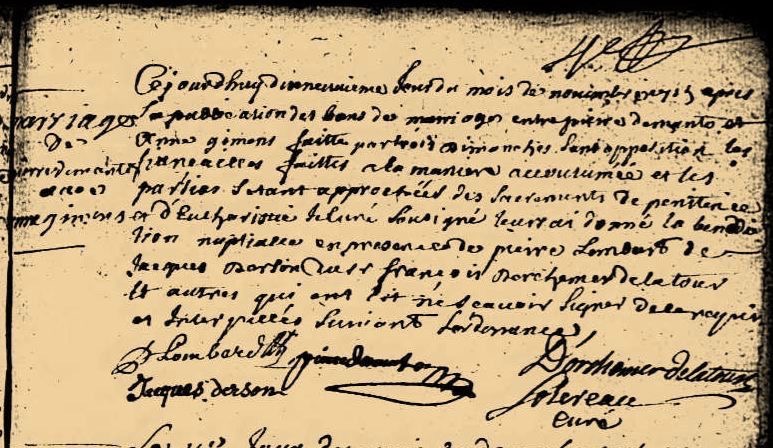 mariage
De
pierre demante
avec
anne gimons
Ce jourdhuy dixneuvieme Jour du mois de novembre 1715 apres
la publication des bans de mariage entre pierre demante et
Anne gimons faitte par trois dimanches sans opposition les
fiancailles faittes a la maniere accoutumée et les
parties setant approchées des sacrements de penitence
et d'Eucharistie Je Curé soussigné leurrai donné la benedic
tion nuptialle en presence de pierre Lombard de
Jacques Derson du sr françois Dorchemer delatour
Et autres qui ont dit ne scavoir signer de ce requis
et Interpellés suivant Lordonnance
P Lombard pierre demante Dorchemer delatour
Jacques derson
curé